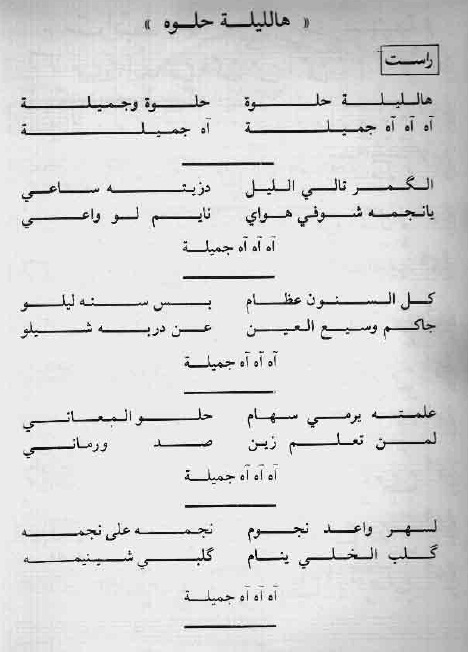 « هالليلة حلوه »
راست
هالليلة حلوة حلوة وجميلة
آه آه آه جميلة آه جميلة
الگمر تالي الليل دزيته ساعي
يانجمه شوفي هواي نايم لو واعي
آه آه آه جميلة
كل السنون عظام بس سنه ليلو
جاكم وسيع العين عن دربه شيلو
آه آه آه جميلة
علمته يرمي سهام حلو المعاني
لمن تعلم زين صد ورماني
آه آه آه جميلة
لسهر واعد نجوم نجمه على نجمه
گلب الخلي ينام گلبي شينيمه
آه آه آه جميلة